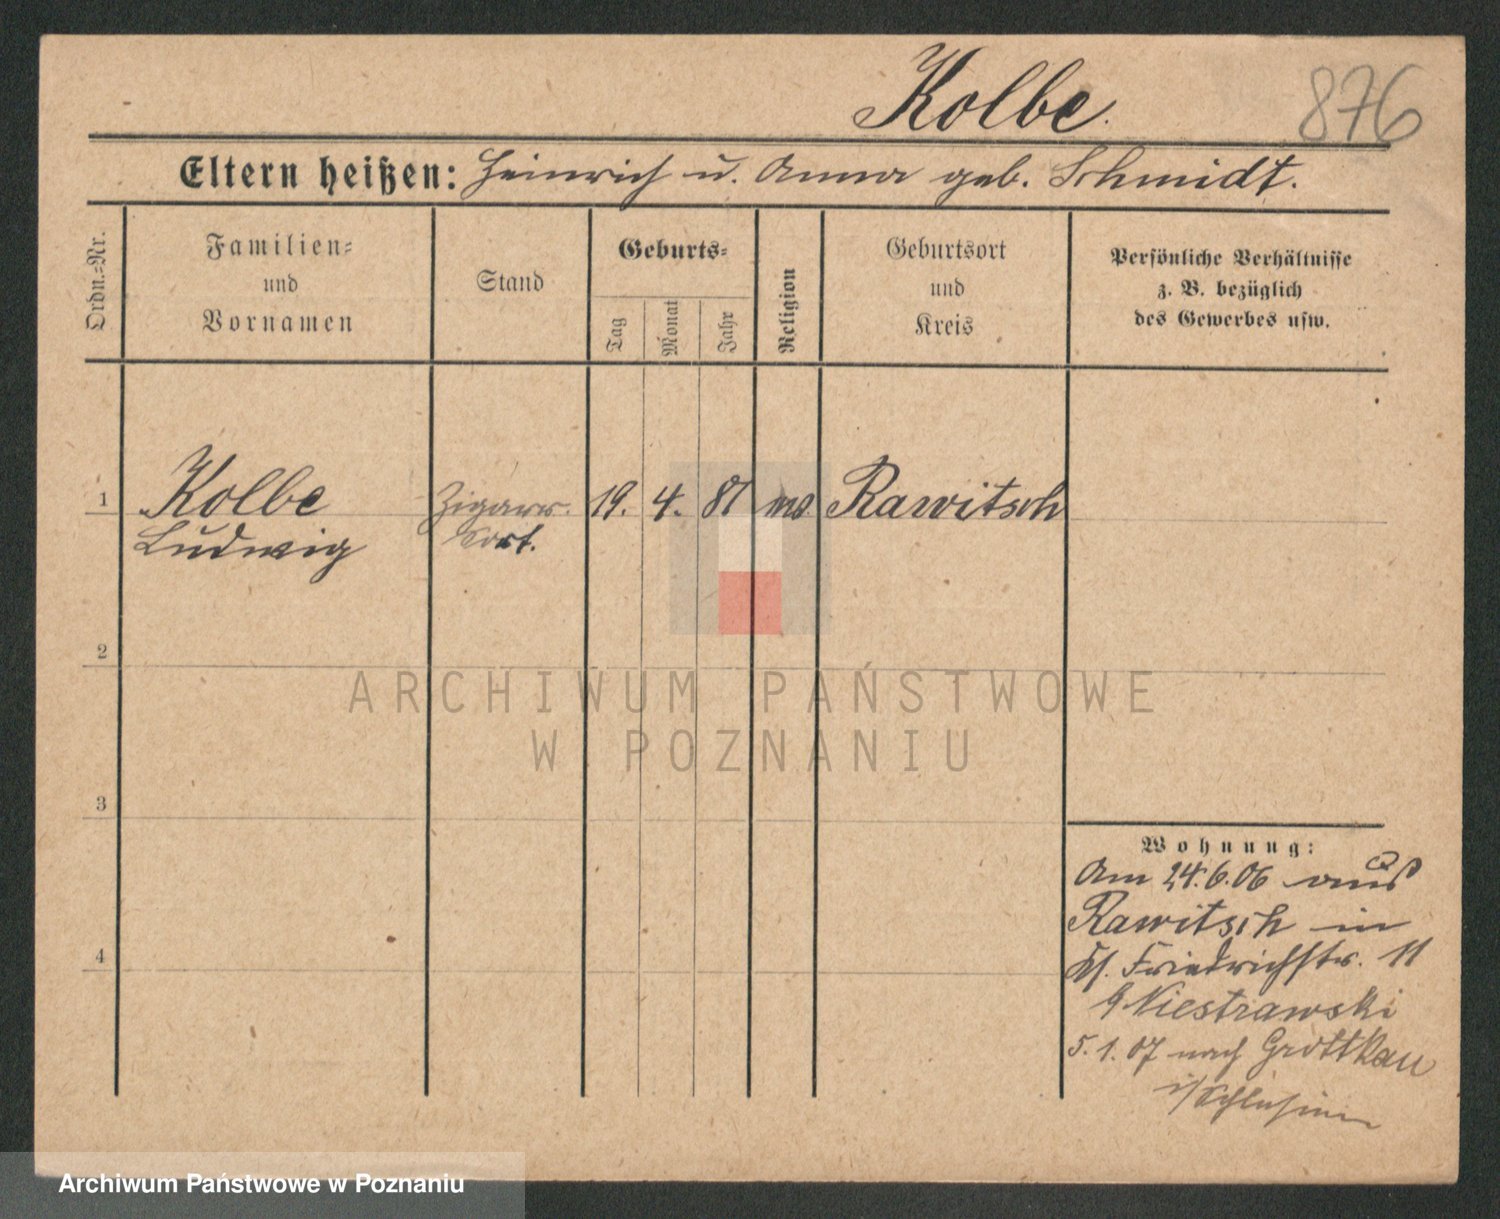 Kolbe.
876
Eltern heißen: Heinrich u. Anna geb. Schmidt.
Ordn.=Nr.
Familien=
und
Vornamen
Stand
Geburts=
Tag
Monat
Jahr
Religion
Geburtsort
und
Kreis
Persönliche Verhältnisse
z. B. bezüglich
des Gewerbes usw.
1
Kolbe
Ludwig
Zigarr.
Sort.
19. 4. 87
Rawitsch
2
3
4
Wohnung:
Am 24.6.06 aus
Rawitsch in
Kl. Friedrichstr. 11
Niestrawski
5.1.07 nach Grottkau
i/Schlesien
ARCHIWUM PAŃSTWOWE
W POZNANIU
Archiwum Państwowe w Poznaniu